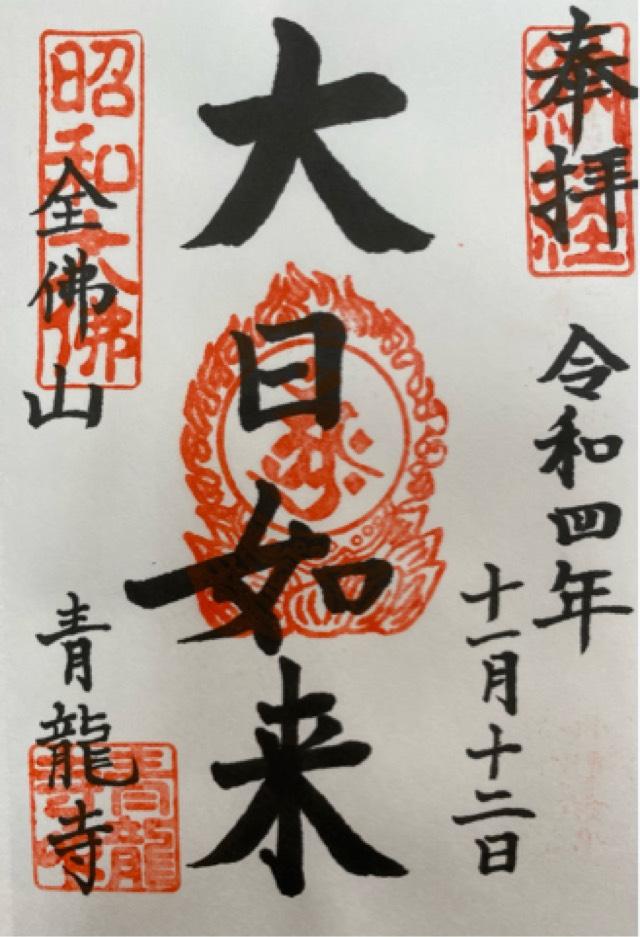 奉拝
納経
令和四年
十一月十二日
大日如来
全佛山
昭和大佛
青龍寺
青龍寺